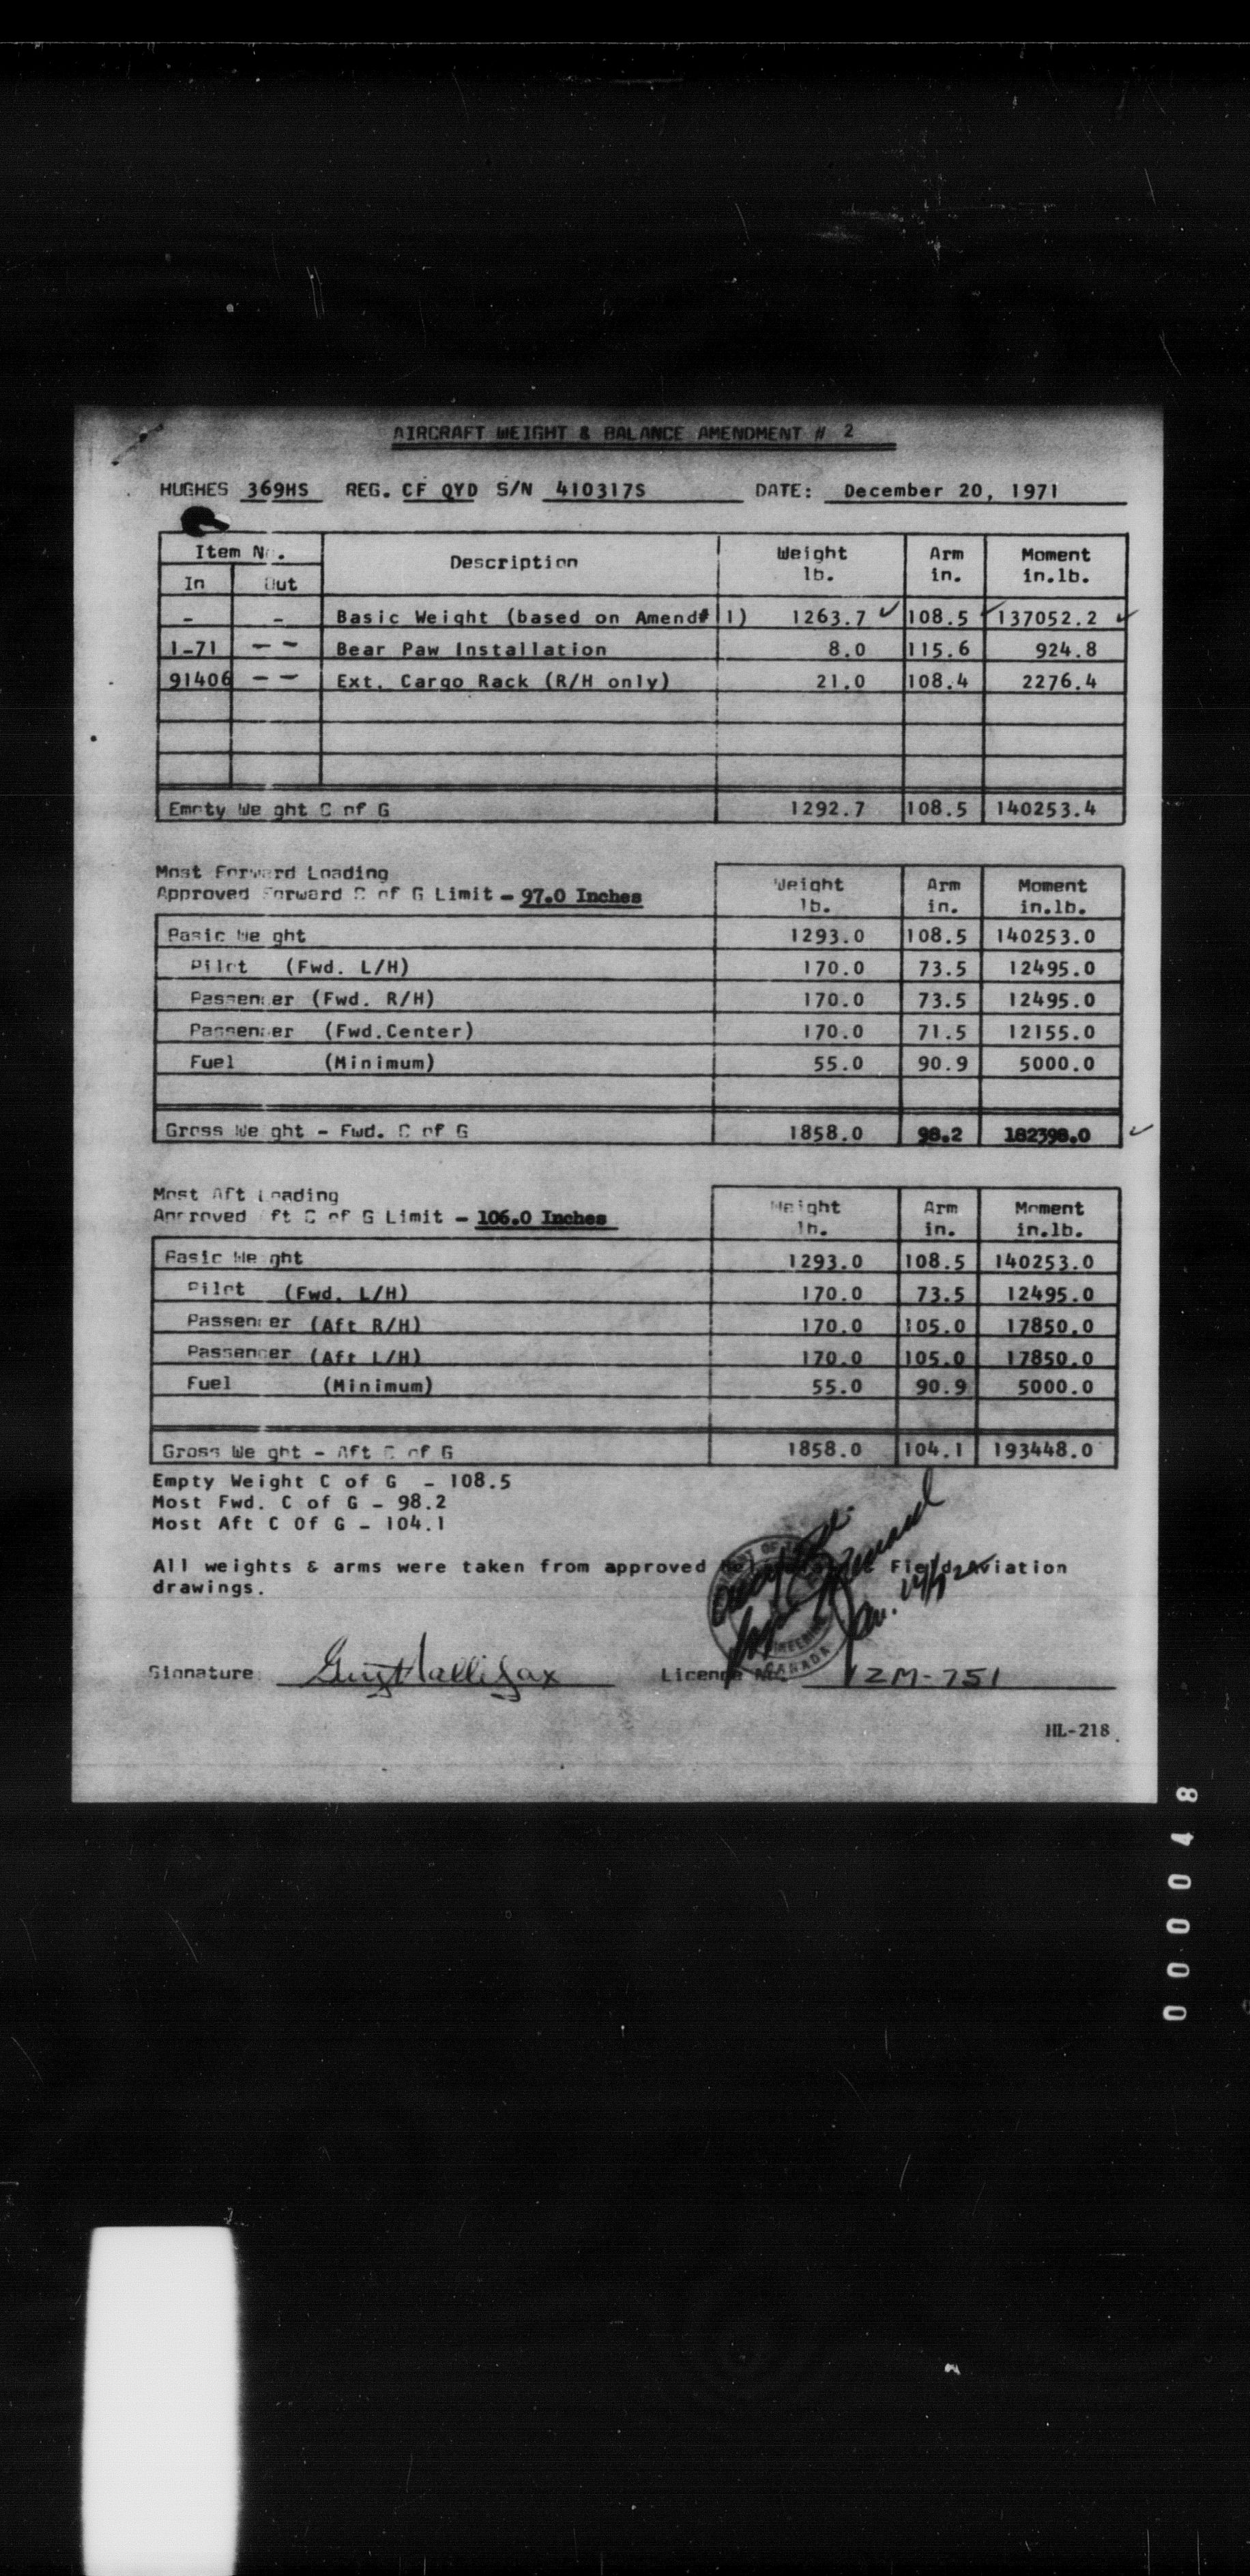 AIRCRAFT WEIGHT & BALANCE AMENDMENT # 2
HUGHES 369HS REG. CF QYD S/N 410317S DATE: December 20, 1971
Item No. Description Weight lb. Arm in. Moment in.lb.
In Out
- - Basic Weight (based on Amend# 1) 1263.7 ✓ 108.5 ✓ 137052.2 ✓
1-71 -- Bear Paw Installation 8.0 115.6 924.8
91406 -- Ext. Cargo Rack (R/H only) 21.0 108.4 2276.4
Empty Weight C of G 1292.7 108.5 140253.4
Most Forward Loading
Approved Forward C of G Limit - 97.0 Inches
Weight lb. Arm in. Moment in.lb.
Basic Weight 1293.0 108.5 140253.0
Pilot (Fwd. L/H) 170.0 73.5 12495.0
Passenger (Fwd. R/H) 170.0 73.5 12495.0
Passenger (Fwd.Center) 170.0 71.5 12155.0
Fuel (Minimum) 55.0 90.9 5000.0
Gross Weight - Fwd. C of G 1858.0 98.2 182398.0 ✓
Most Aft Loading
Approved Aft C of G Limit - 106.0 Inches
Weight lb. Arm in. Moment in.lb.
Basic Weight 1293.0 108.5 140253.0
Pilot (Fwd. L/H) 170.0 73.5 12495.0
Passenger (Aft R/H) 170.0 105.0 17850.0
Passenger (Aft L/H) 170.0 105.0 17850.0
Fuel (Minimum) 55.0 90.9 5000.0
Gross Weight - Aft C of G 1858.0 104.1 193448.0
Empty Weight C of G - 108.5
Most Fwd. C of G - 98.2
Most Aft C Of G - 104.1
All weights & arms were taken from approved Field Aviation
drawings.
CANADA
Signature Guy Hallifax Licence No. YZM-751
HL-218
000048